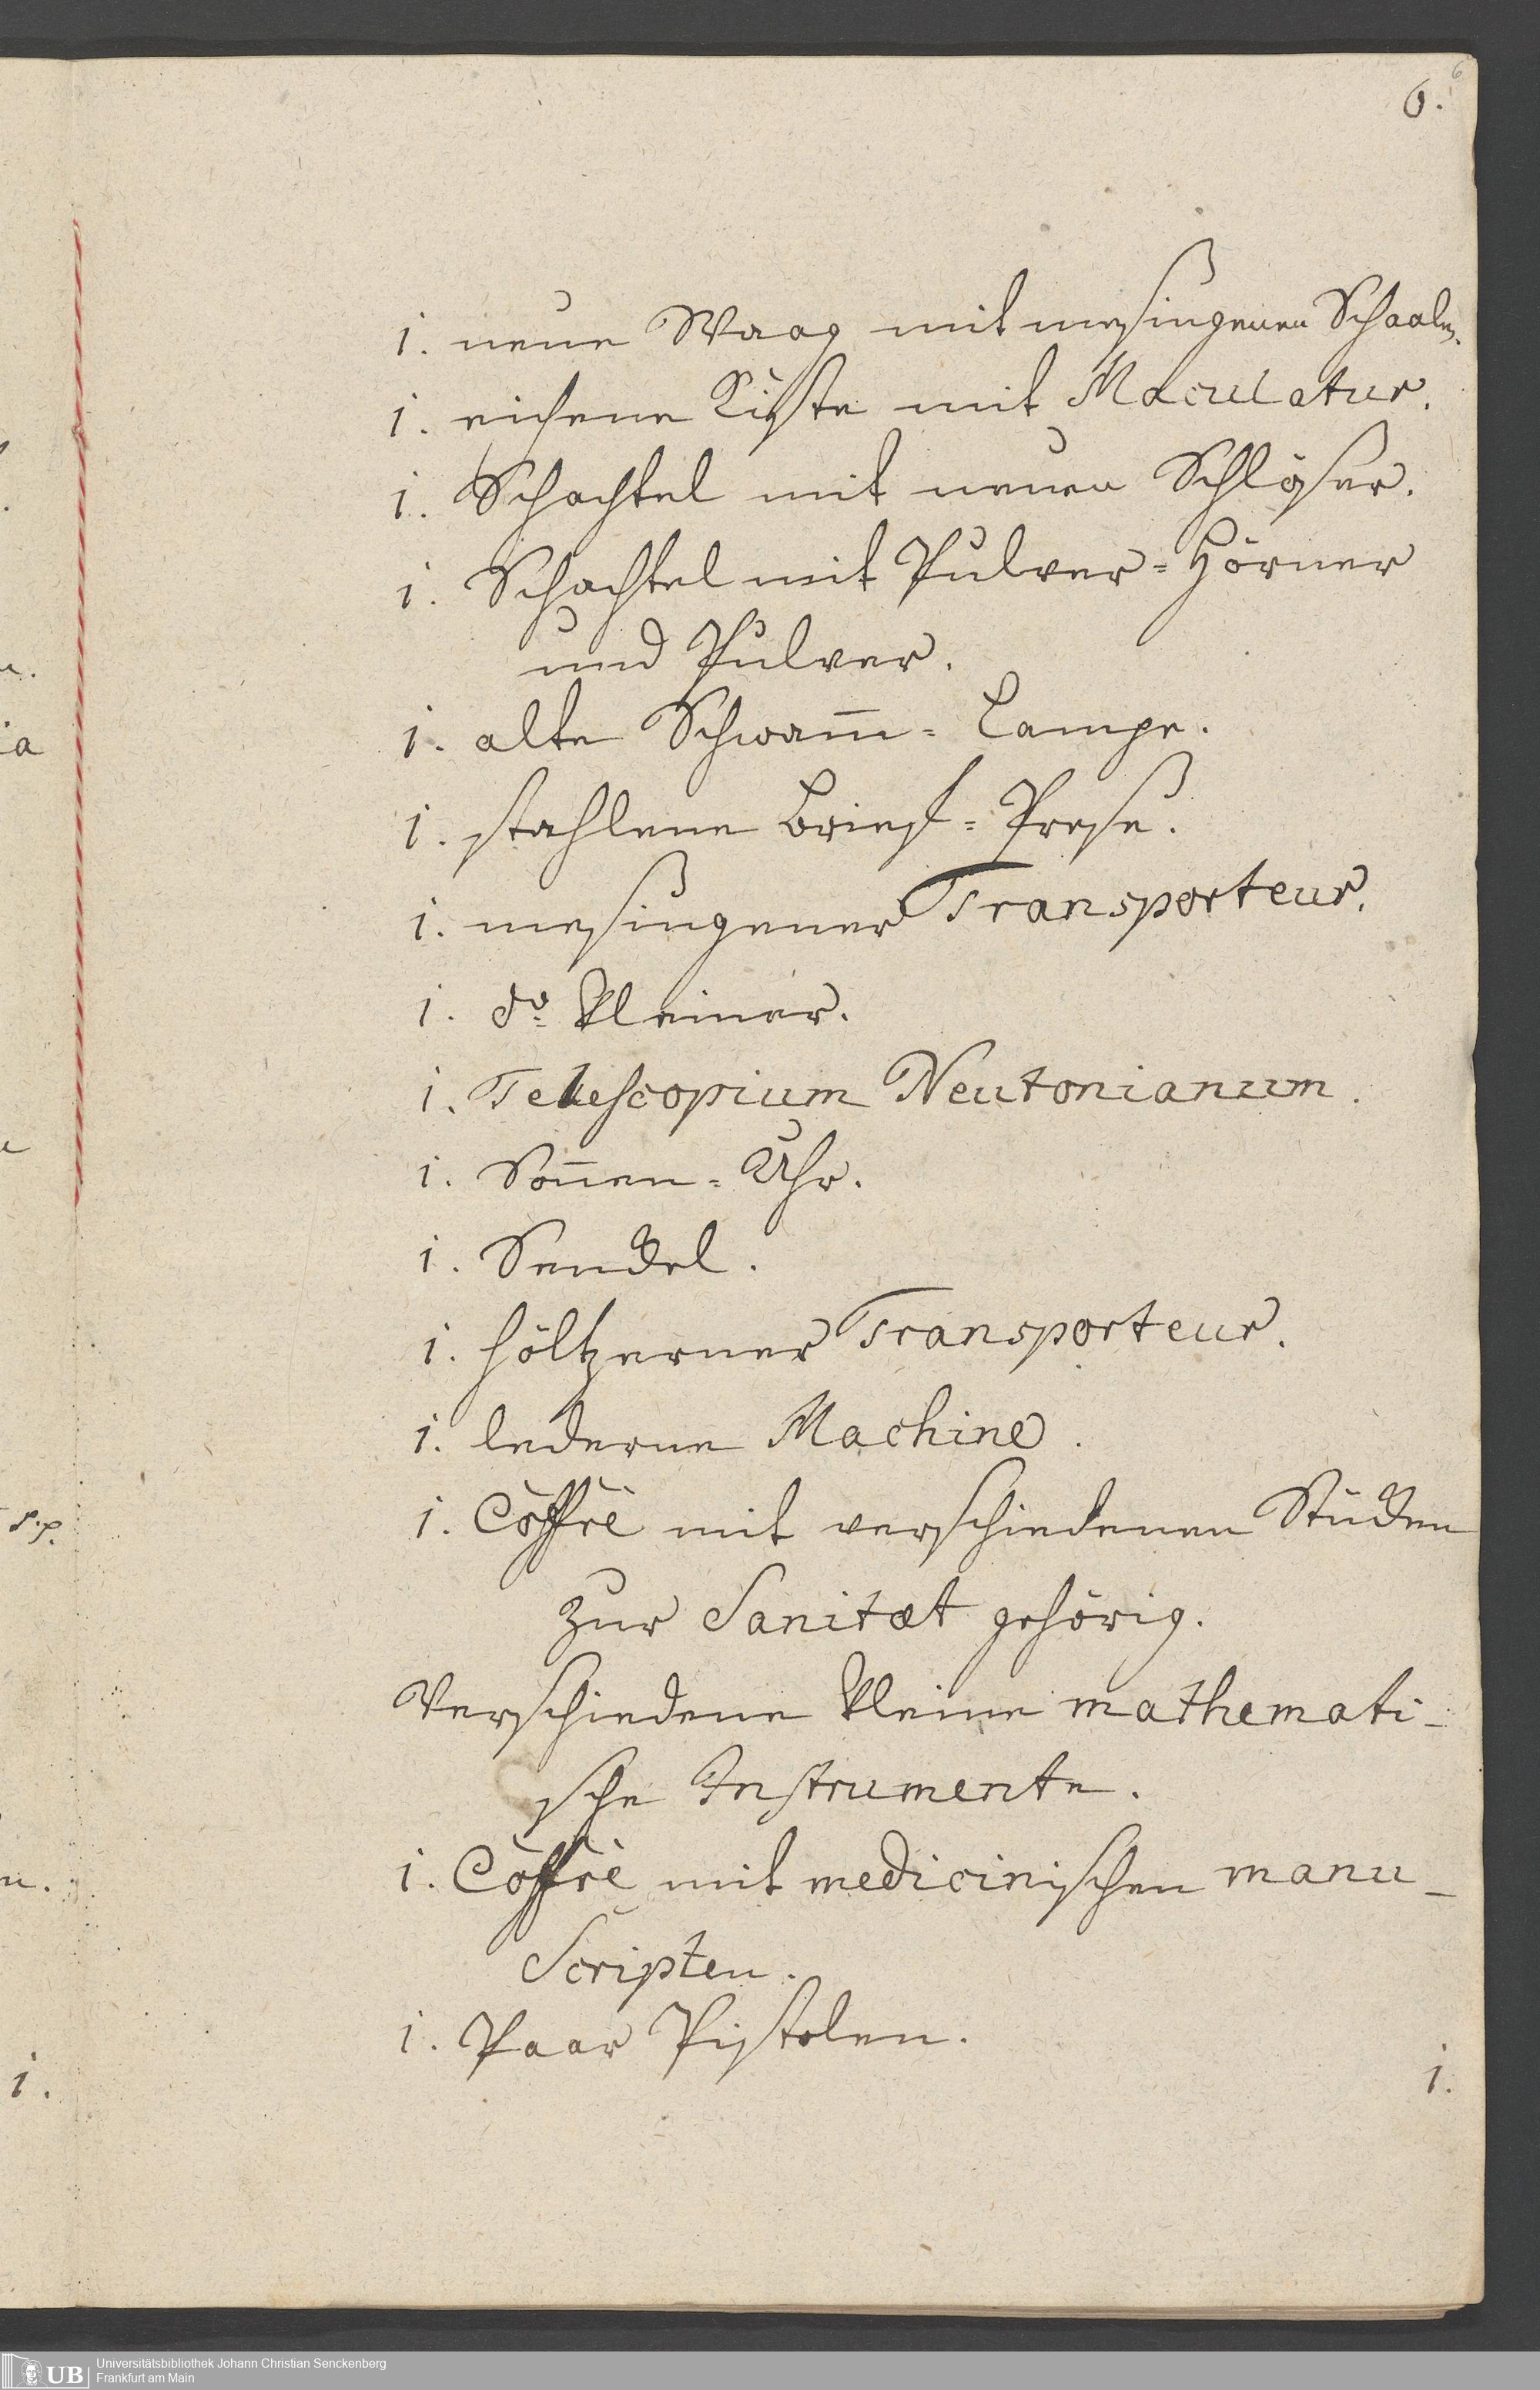 6
6.
1. neue Waag mit meßingenen Schaalen.
1. eichene Kiste mit Maculatur.
1. Schachtel mit neuen Schlößer.
1. Schachtel mit Pulver=Hörner
und Pulver.
1. alte Schwam̅=Lampe.
1. stahlene Brief=Preße.
1. meßingener Transporteur.
1. do kleiner.
1. Telescopium Neutonianum.
1. Son̅en=Uhr.
1. Senckel.
1. höltzerner Transporteur.
1. lederne Machine.
1. Coffre mit verschiedenen Stücken
zur Sanitæt gehörig.
Verschiedene kleine mathemati-
sche Instrumente.
1. Coffre mit medicinischen manu-
Scripten.
1. Paar Pistolen.
1.
1.
UB Universitätsbibliothek Johann Christian Senckenberg
Frankfurt am Main